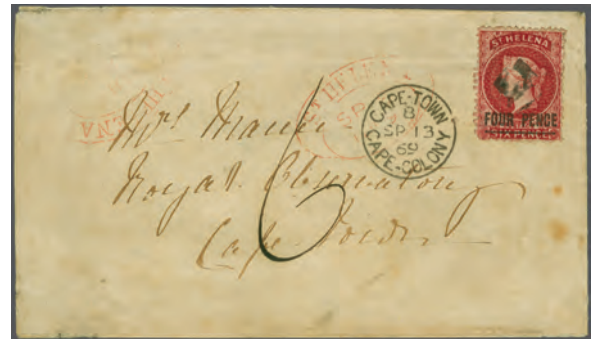 ST HELENA
FOUR PENCE
ST HELENA
SP
CAPE-TOWN
8
SP 13
69
CAPE-COLONY
Mrs
Royal Observatory
Cape Town
6